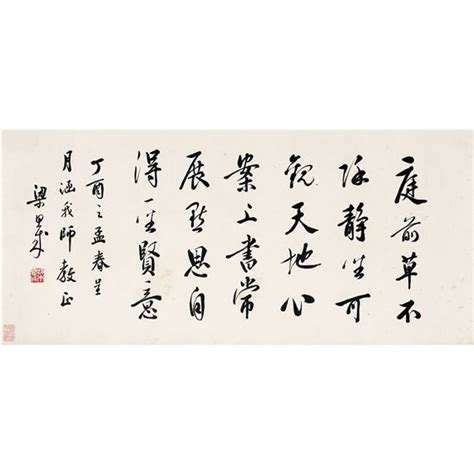 庭前草不
除靜坐可
觀天地心
案上書常
展默思自
得聖賢意
丁酉之孟春呈
月涵我師教正
梁